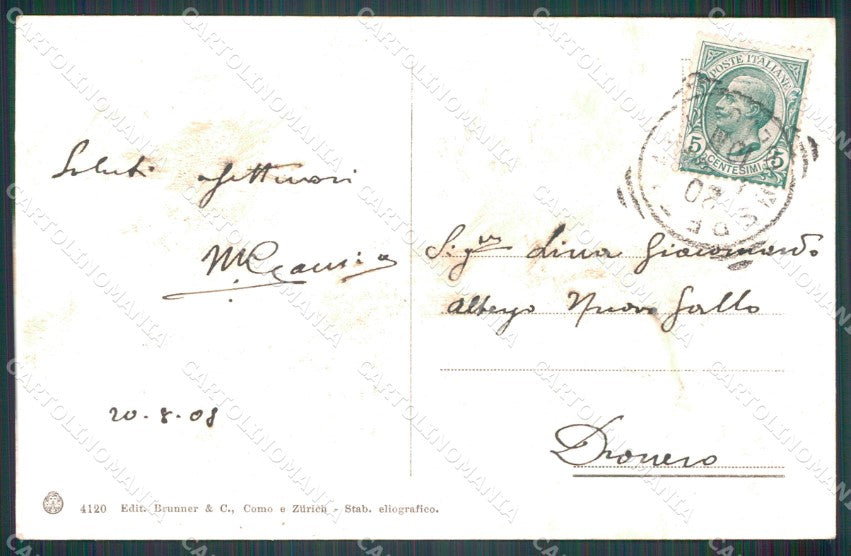 POSTE ITALIANE
5 CENTESIMI 5
Saluti affettuosi
Sig.na Lina Giacomardo
Albergo Nuovo Gallo
20.8.08
Dronero
4120 Edit. Brunner & C., Como e Zürich - Stab. eliografico.
CARTOLINOMANIA